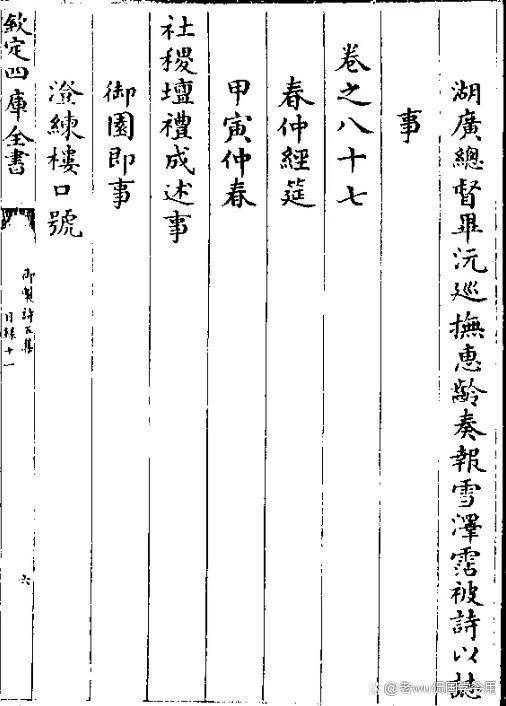 湖廣總督畢沅巡撫惠齡奏報雪澤霑被詩以誌
事
卷之八十七
春仲經筵
甲寅仲春
社稷壇禮成述事
御園即事
澄練樓口號
欽定四庫全書
御製詩五集
目錄十一
六
@老wu侃国学令用